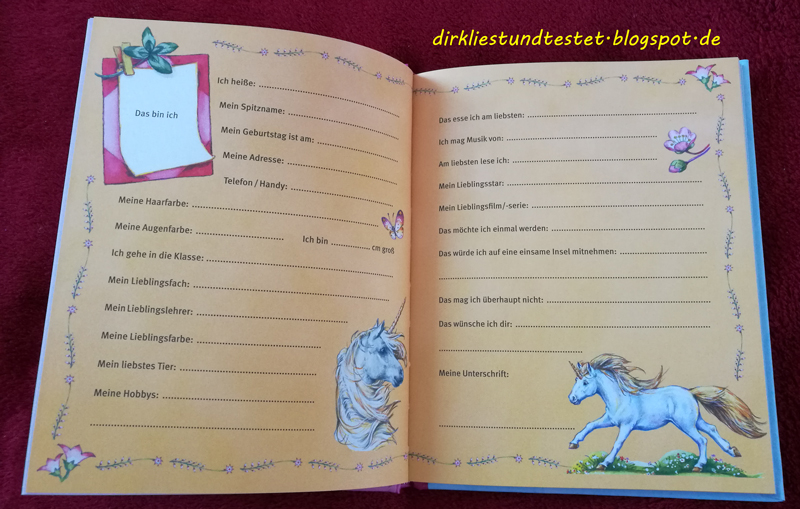 dirkliestundtestet.blogspot.de
Das bin ich
Ich heiße:
Mein Spitzname:
Mein Geburtstag ist am:
Meine Adresse:
Telefon / Handy:
Meine Haarfarbe:
Meine Augenfarbe: Ich bin cm groß
Ich gehe in die Klasse:
Mein Lieblingsfach:
Mein Lieblingslehrer:
Meine Lieblingsfarbe:
Mein liebstes Tier:
Meine Hobbys:
Das esse ich am liebsten:
Ich mag Musik von:
Am liebsten lese ich:
Mein Lieblingsstar:
Mein Lieblingsfilm/-serie:
Das möchte ich einmal werden:
Das würde ich auf eine einsame Insel mitnehmen:
Das mag ich überhaupt nicht:
Das wünsche ich dir:
Meine Unterschrift: